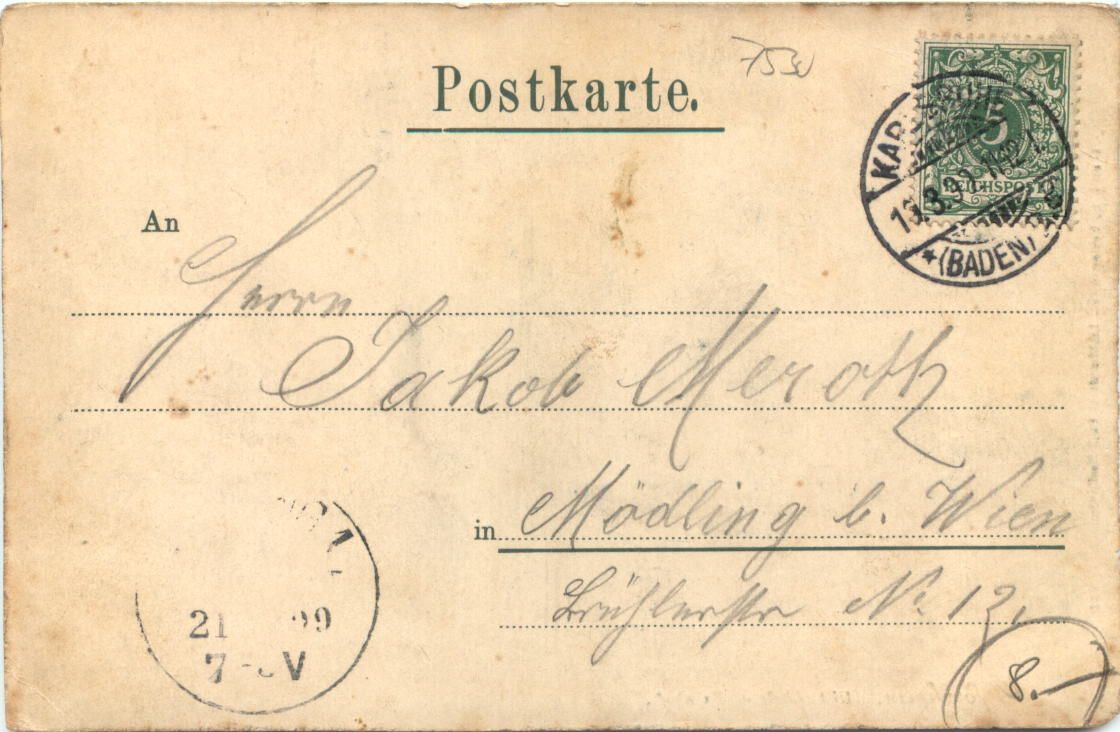 Postkarte.
5
REICHSPOST
KARLSRUHE
13.3.99.
*(BADEN)
An
Herrn
Jakob Meroth
in Mödling b. Wien
Brühlerstr No 12.
21 99
7 V
8.-